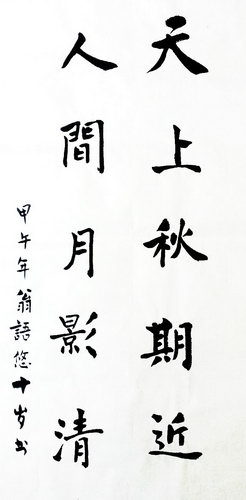 天上秋期近
人間月影清
甲午年翁語悠十岁书